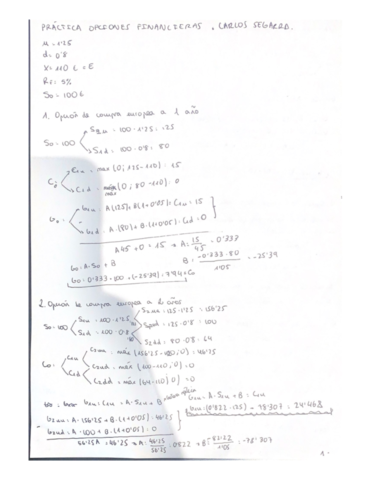 PRÁCTICA OPCIONES FINANCIERAS. CARLOS SEGARRA.
u = 1'25
d = 0'8
X = 110 € = E
Rf = 5%
S0 = 100€
1. Opción de compra europea a 1 año
S0 = 100
S1u = 100 · 1'25 = 125
S1d = 100 · 0'8 = 80
C1u = max (0; 125-110) = 15
C1d = máx (0; 80-110) = 0
A(125) + B(1+0'05) = C1u = 15
A·(80) + B·(1+0'05) = C1d = 0
A45 + 0 = 15 → A = 15/45 = 0'333
B = -0'333·80 / 1'05 = -25'39
C0 = A·S0 + B
C0 = 0'333 · 100 + (-25'39) = 7'94 €
2. Opción de compra europea a 2 años
S0 = 100
S1u = 100 · 1'25
S1d = 100 · 0'8
S2uu = 125 · 1'25 = 156'25
S2ud = 125 · 0'8 = 100
S2dd = 80 · 0'8 = 64
C2uu = máx (156'25-110; 0) = 46'25
C2ud = máx (100-110; 0) = 0
C2dd = máx (64-110; 0) = 0
C1u = A · S1u + B
A · 156'25 + B · (1+0'05) = 46'25
A · 100 + B · (1+0'05) = 0
56'25A = 46'25 → A = 46'25/56'25 = 0'822
-78'307
1